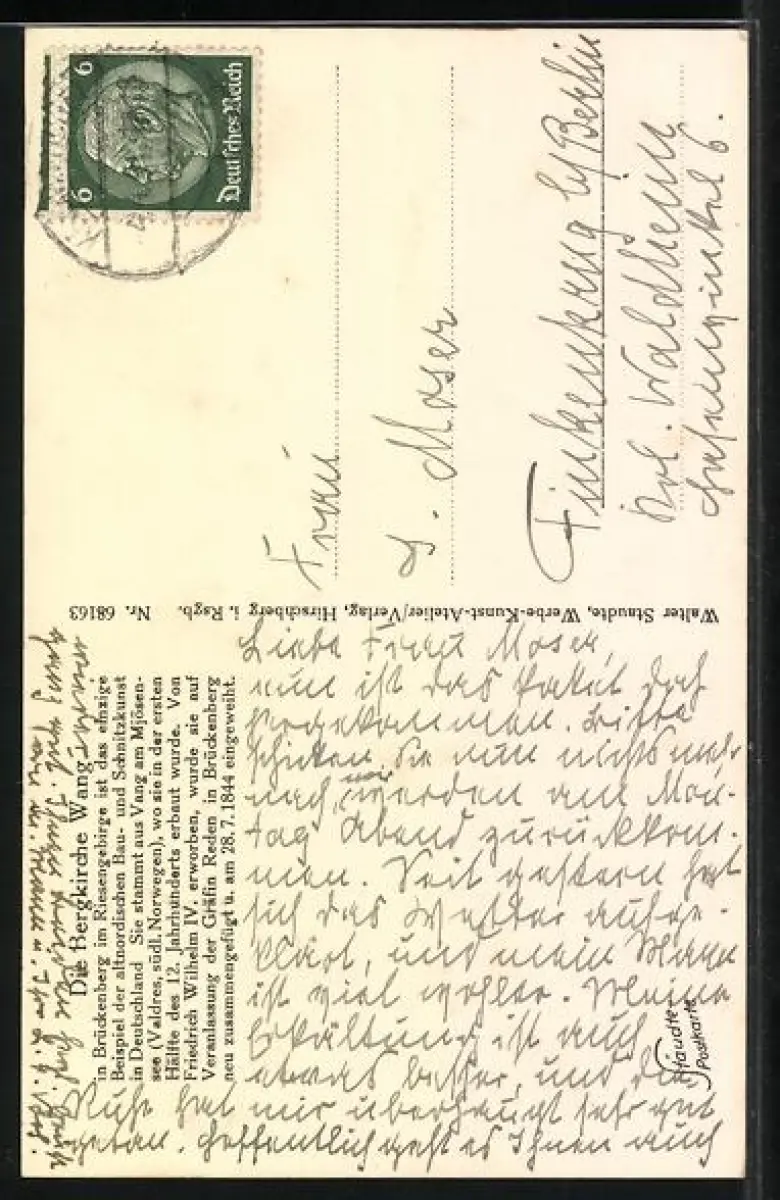 Die Bergkirche Wang
in Brückenberg im Riesengebirge ist das einzige
Beispiel der altnordischen Bau- und Schnitzkunst
in Deutschland Sie stammt aus Vang am Mjösen-
see (Valdres, südl. Norwegen), wo sie in der ersten
Hälfte des 12. Jahrhunderts erbaut wurde. Von
Friedrich Wilhelm IV. erworben, wurde sie auf
Veranlassung der Gräfin Reden in Brückenberg
neu zusammengefügt u. am 28.7.1844 eingeweiht.
Walter Staudte, Werbe-Kunst-Atelier/Verlag, Hirschberg i. Rsgb. Nr. 68163
6 6
Deutsches Reich
Frau
Moser
Finkenkrug b/ Berlin
Kol. Waldheim
6.
Liebe Frau Moser,
nun ist das Paket doch
angekommen. Bitte
schicken Sie nun nichts mehr
nach, wir werden am Mon-
tag Abend zurückkom-
men. Seit gestern hat
sich das Wetter aufge-
klärt, und mein Mann
ist viel wohler. Meine
Erkältung ist auch
etwas besser, und die
Ruhe hat mir überhaupt sehr gut
getan. Hoffentlich geht es Ihnen auch
Staudte
Postkarte